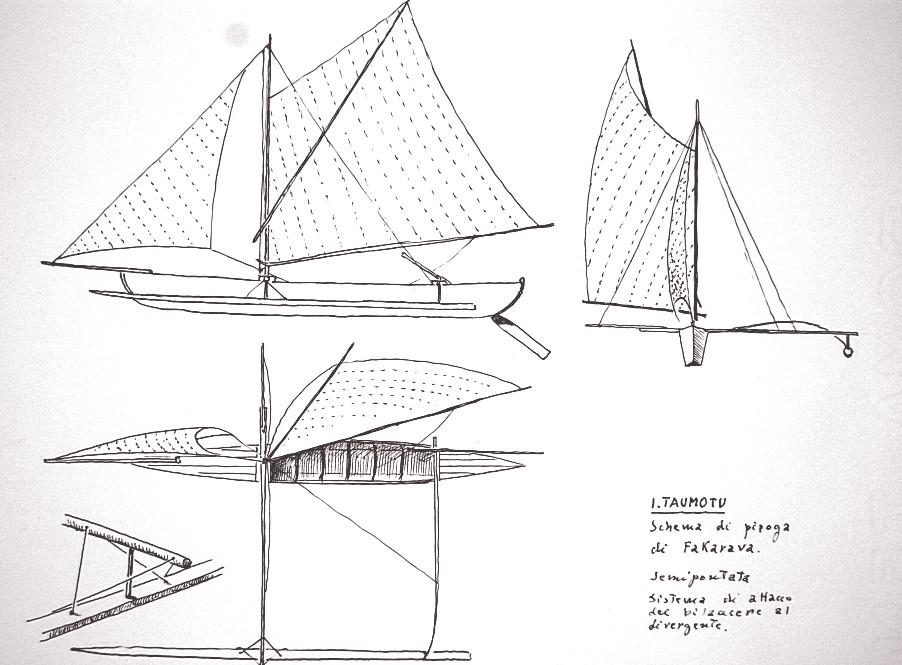 I. TAUMOTU
Schema di piroga
di FaKarava.
Semipontata
Sistema di attacco
del bilanciere al
divergente.